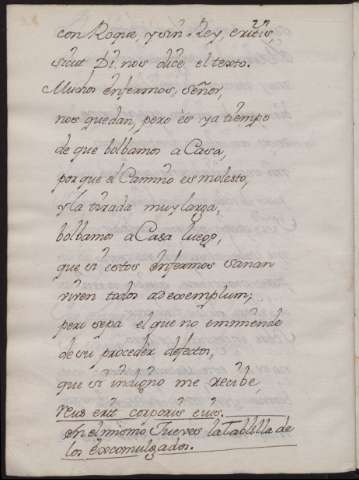 con Roque, y sin Rey, eritis,
sicut Di, nos dice el texto.
Muchos enfermos, señor,
nos quedan, pero es ya tiempo
de que bolbamos a Casa,
porque el Camino es molesto,
y la tirada muy larga,
bolbamos a Casa luego,
que si estos enfermos sanan
viven todos ad exemplum;
pero sepa el que no emmiende
de su proceder defectos,
que si indigno me recibe,
reus erit corporis eius.
En el mismo Jueves la tablilla de
los excomulgados.